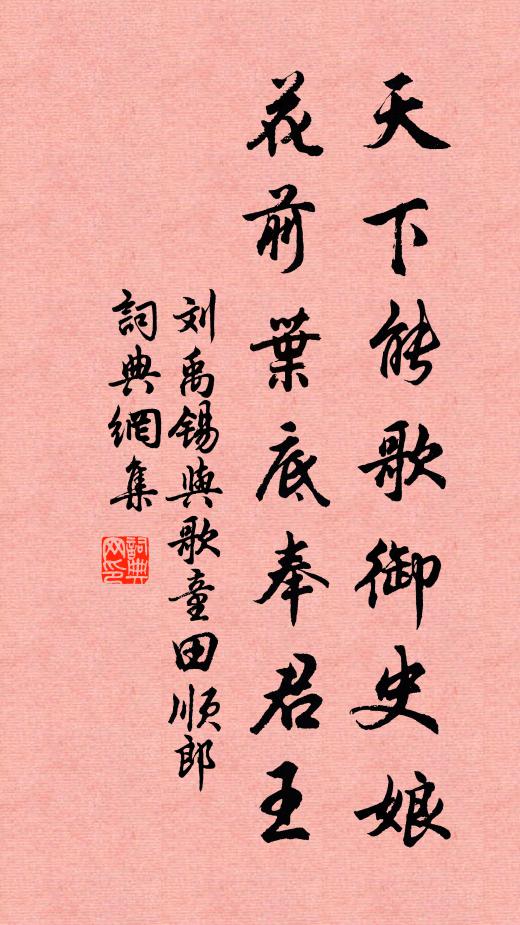 天下能歌御史娘
花前葉底奉君王
刘禹锡與歌童田順郎
詞典網集
詞典网印